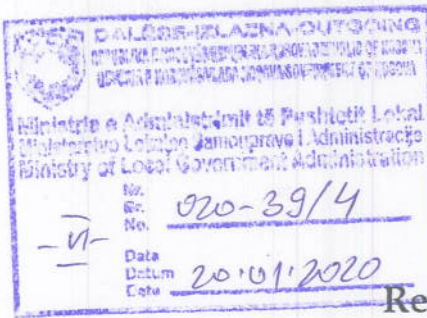 DALËSE-IZLAZNA-OUTGOING
Ministria e Administrimit të Pushtetit Lokal
Ministarstvo Lokalne Samouprave i Administracije
Ministry of Local Government Administration
Nr.
Br.
No. 020-39/4
-VI-
Data
Datum
Date 20.01.2020
Re